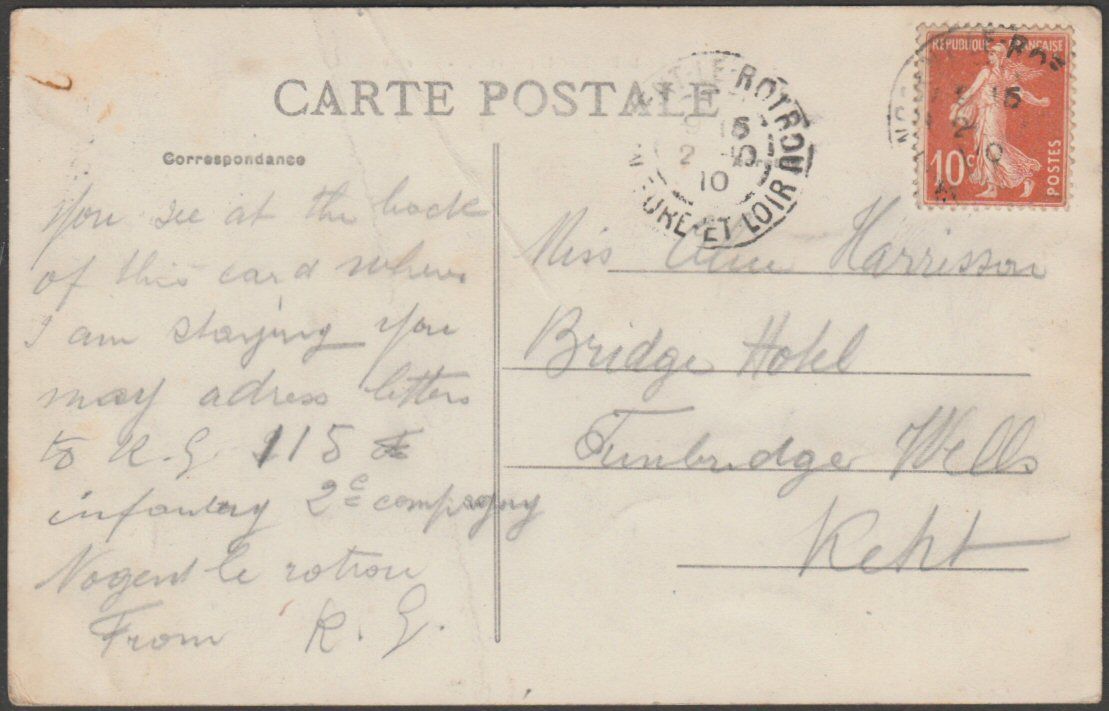 CARTE POSTALE
Correspondance
You see at the back
of this card where
I am staying you
may adress letters
to R. G. 115
infantery 2e compagny
Nogent le rotrou
From R. G.
NT-LE-ROTROU
15
2 10
10
EURE-ET-LOIR
REPUBLIQUE FRANÇAISE
10c
POSTES
LE-RO
15
2
10
Miss Harrisson
Bridge Hotel
Tunbridge Wells
Kent